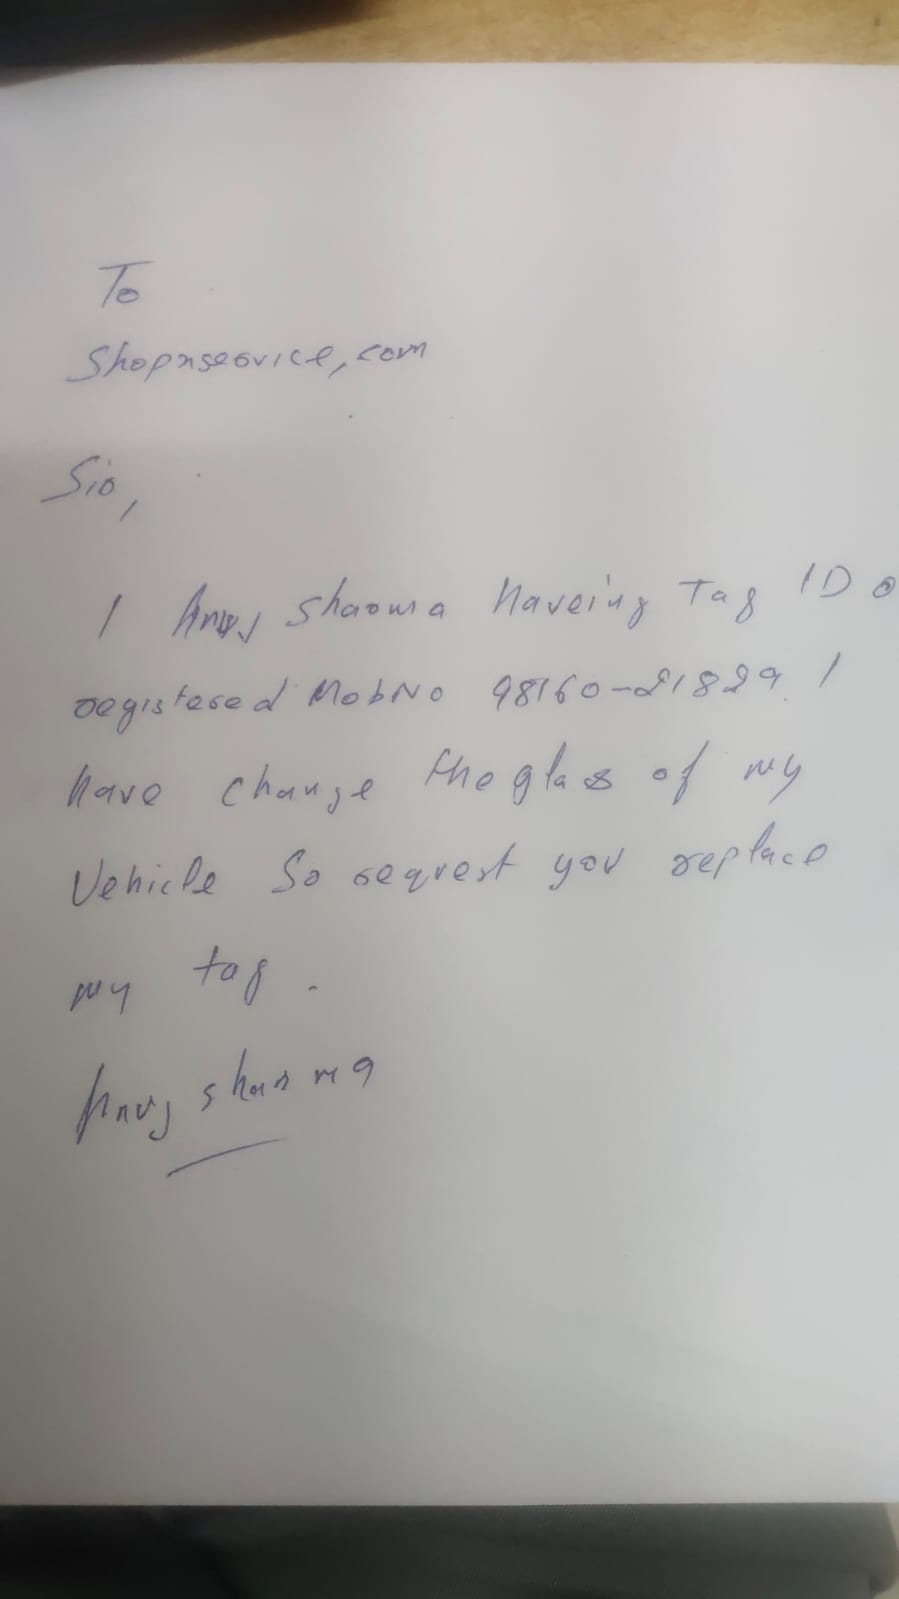 To
Shopnservice,com
Sir,
I Anuj Sharma haveing Tag ID o
registered MobNo 98160-21829. I
have change the glass of my
Vehicle So request you replace
my tag.
Anuj sharma